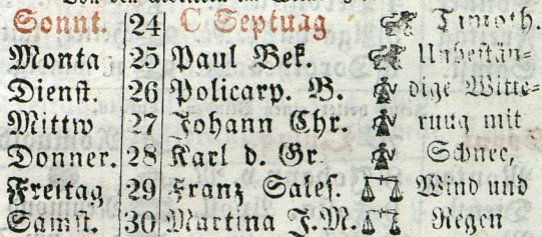 Sonnt. 24 C Septuag Timoth.
Monta 25 Paul Bek. Unbestän-
Dienst. 26 Policarp. B. dige Witte-
Mittw 27 Johann Chr. ruug mit
Donner. 28 Karl d. Gr Schnee,
Freitag 29 Franz Sales. Wind und
Samst. 30 Martina J.M. Regen